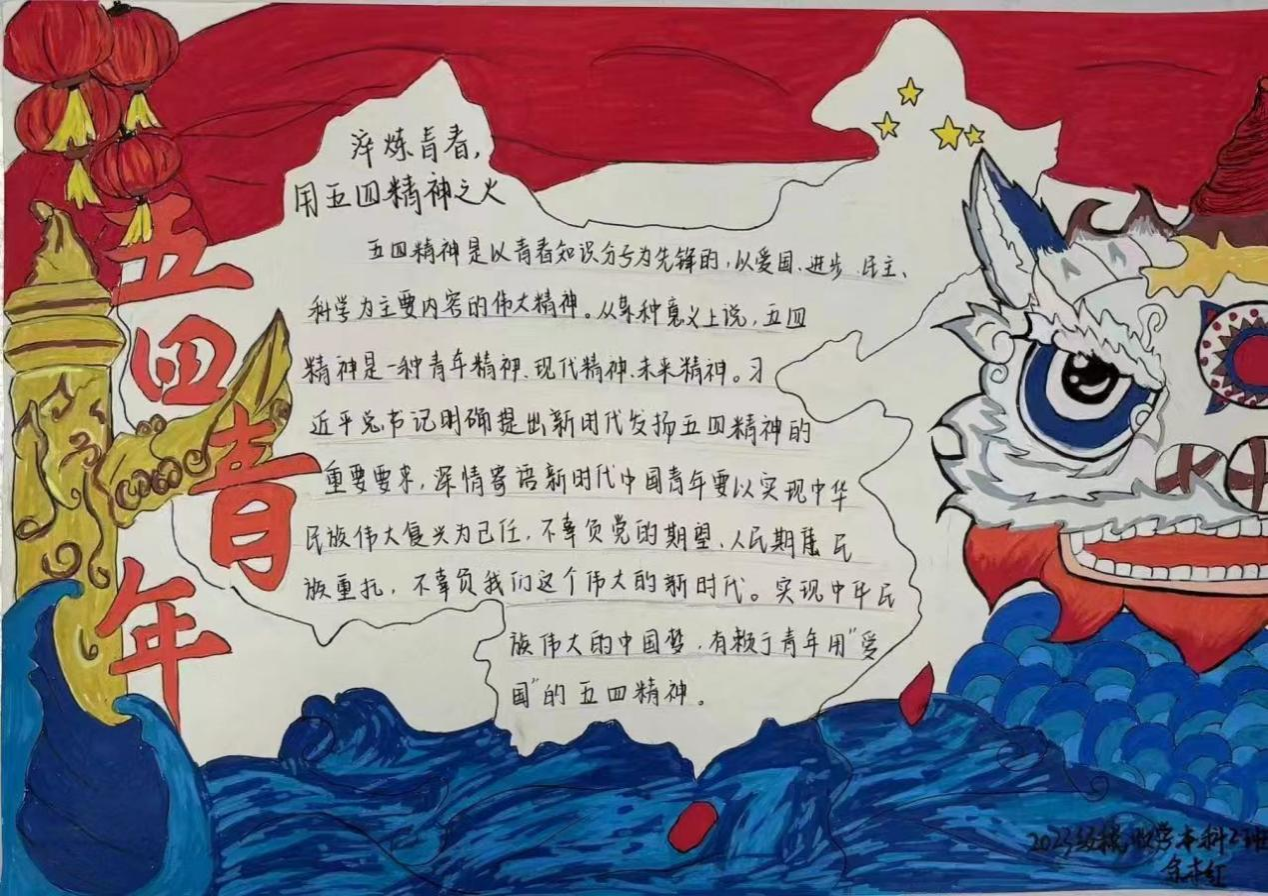 五四青年
淬炼青春,
用五四精神之火
五四精神是以青春知识分子为先锋的,以爱国、进步、民主、
科学为主要内容的伟大精神。从某种意义上说,五四
精神是一种青年精神、现代精神、未来精神。习
近平总书记明确提出新时代发扬五四精神的
重要要求,深情寄语新时代中国青年要以实现中华
民族伟大复兴为己任,不辜负党的期望、人民期待、民
族重托,不辜负我们这个伟大的新时代。实现中华民
族伟大的中国梦,有赖于青年用“爱
国”的五四精神。
2023级 学本科2班